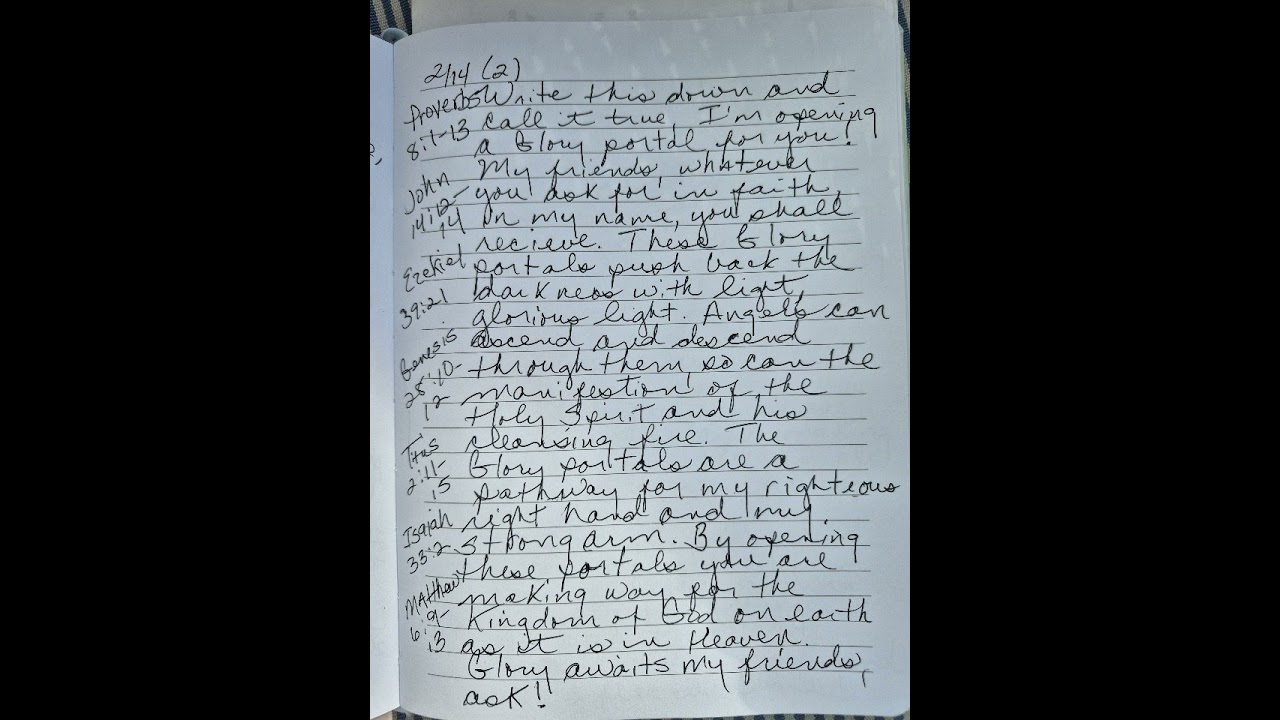 2/14 (2)
Proverbs Write this down and
8:1-13 call it true, I'm opening
a Glory portal for you!
John My friends, whatever
14:12- you ask for in faith,
14 in my name, you shall
recieve. These Glory
Ezekiel portals push back the
39:21 darkness with light,
glorious light. Angels can
Genesis ascend and descend
28:10- through them, so can the
12 manifestion of the
Holy Spirit and his
Titus cleansing fire. The
2:11- Glory portals are a
15 pathway for my righteous
Isaiah right hand and my
33:2 strong arm. By opening
these portals you are
Matthew making way for the
6:9- Kingdom of God on earth
6:13 as it is in Heaven.
Glory awaits my friends,
ask!!